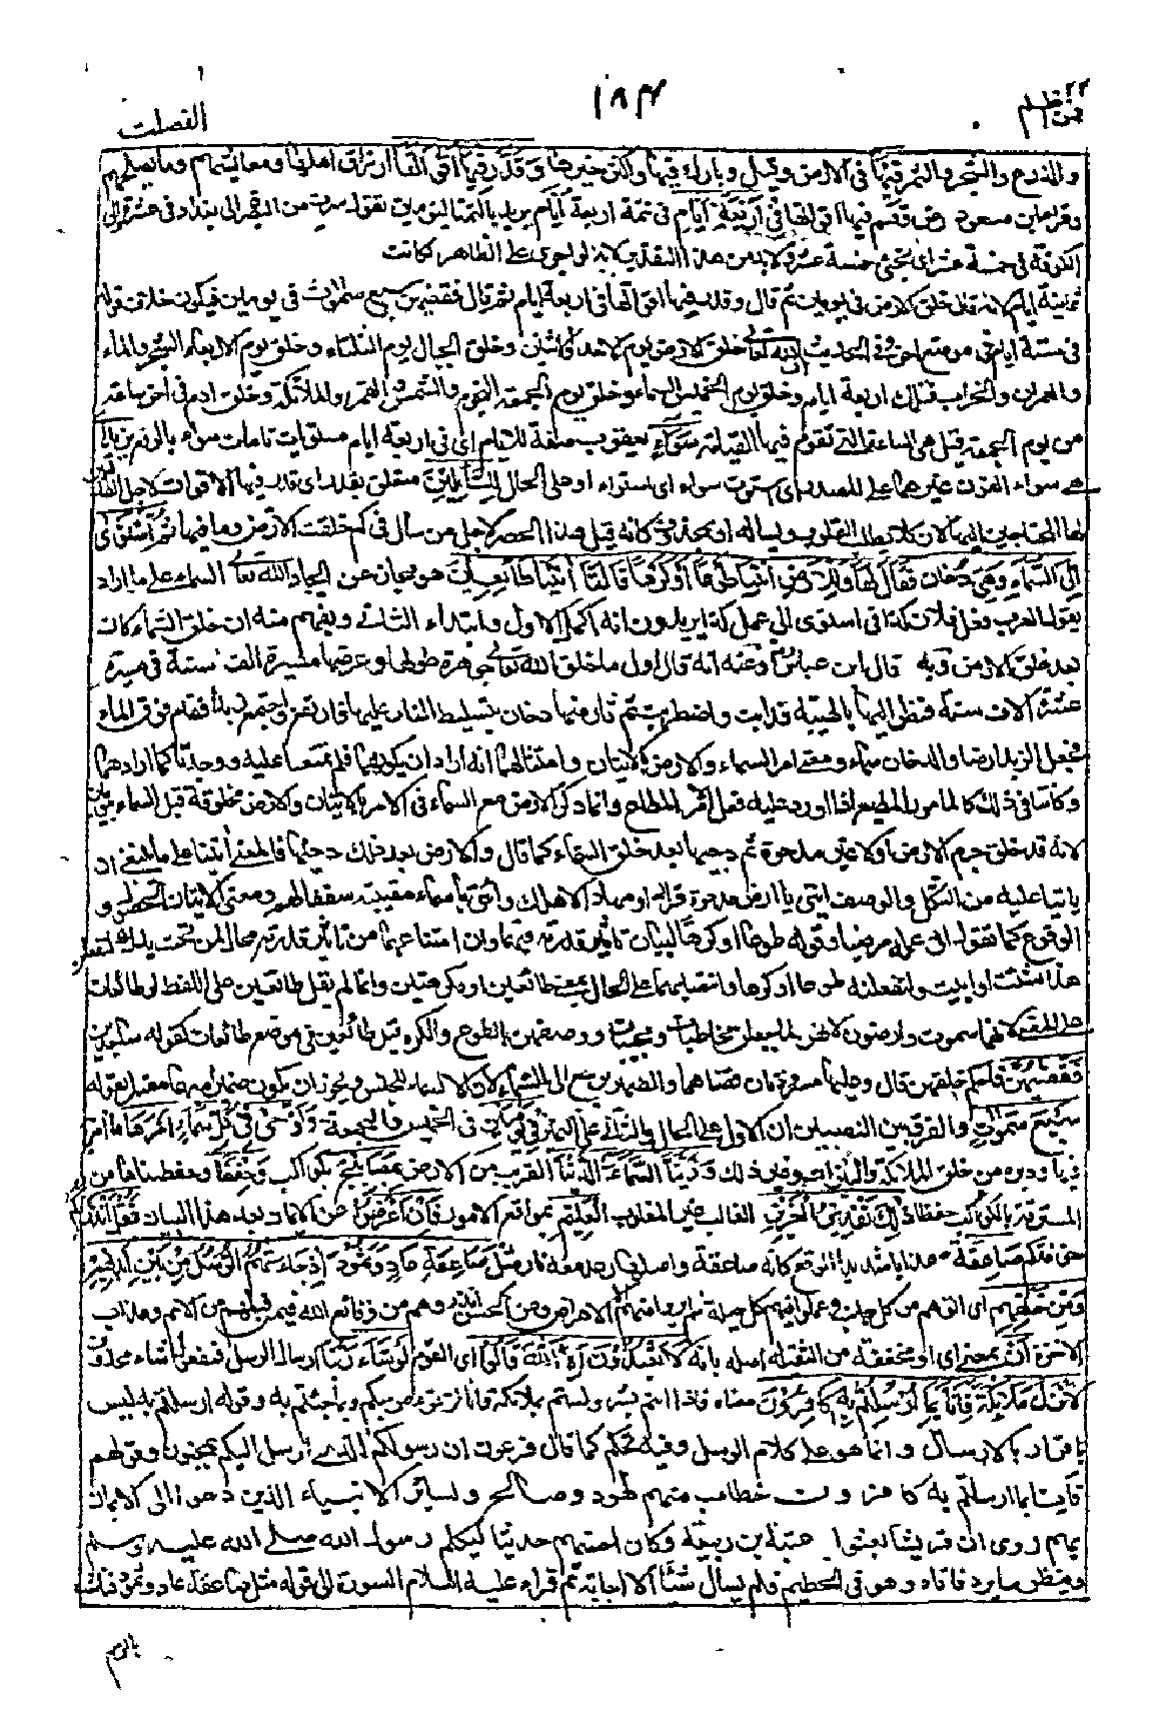 فمن اظلم ٢٤
١٨٤
الفصلت
والزرع والشجر والثمر فيها في الارض وقيل وبارك فيها واكثر خيرها وقدر فيها اقواتها ارزاق اهلها ومعايشهم وما يصلحهم
وقرا ابن مسعود رض وقسم فيها اقواتها في اربعة ايام في تتمة اربعة ايام يريد بالتتمة اليومين تقول سرت من البصرة الى بغداد في عشرة والى
الكوفة في خمسة عشر اى تتمة خمسة عشر ولابد من هذا التقدير لانه لو اجرى على الظاهر لكانت
ثمانية ايام لانه قال خلق الارض في يومين ثم قال وقدر فيها اقواتها في اربعة ايام ثم قال فقضيهن سبع سموات في يومين فيكون خلاف قوله
في ستة ايام في موضع اخر وفي الحديث ان الله تعالى خلق الارض يوم الاحد والاثنين وخلق الجبال يوم الثلثاء وخلق يوم الاربعاء الشجر والماء
والعمران والخراب فتلك اربعة ايام وخلق يوم الخميس السماء وخلق يوم الجمعة النجوم والشمس والقمر والملائكة وخلق ادم في اخر ساعة
من يوم الجمعة قيل هى الساعة التى تقوم فيها القيامة سواء يعقوب صفة للايام اى في اربعة ايام مستويات تامات سواء بالرفع يزيد اى
هى سواء الباقون غيرهما على المصدر اى استوت سواء اى استواء او على الحال للسائلين متعلق بقدر اى قدر فيها الاقوات لاجل الطالبين
لها المحتاجين اليها لان كلا يطلب القوت ويساله او بمحذوف كانه قيل هذا الحصر لاجل من سال في كم خلقت الارض وما فيها ثم استوى
الى السماء وهى دخان فقال لها وللارض ائتيا طوعا او كرها قالتا اتينا طائعين هو مجاز عن ايجاد الله تعالى السماء على ما اراد
يقول العرب فعل فلان كذا ثم استوى الى عمل كذا يريدون انه اكمل الاول وابتداء الثانى ويفهم منه ان خلق السماء كان
بعد خلق الارض وبه قال ابن عباس رض وعنه انه قال اول ما خلق الله تعالى جوهرة طولها وعرضها مسيرة الف سنة في مسيرة
عشرة الاف سنة فنظر اليها بالهيبة فذابت واضطربت ثم ثار منها دخان بتسليط النار عليها فارتفع واجتمع زبد فقام فوق الماء
فجعل الزبد ارضا والدخان سماء ومعنى امر السماء والارض بالاتيان وامتثالهما انه اراد ان يكونهما فلم يمتنعا عليه ووجدتا كما ارادهما
وكانتا في ذلك كالمامور المطيع اذا ورد عليه فعل الامر المطاع وانما ذكر الارض مع السماء في الامر بالاتيان والارض مخلوقة قبل السماء بيومين
لانه قد خلق جرم الارض اولا غير مدحوة ثم دحيها بعد خلق السماء كما قال والارض بعد ذلك دحيها فالمعنى ائتيا على ما ينبغى ان
ياتيا عليه من الشكل والوصف ائتى يا ارض مدحوة قرارا ومهادا لاهلك وائتى يا سماء مقببة سقفا لهم ومعنى الاتيان الحصول و
الوقوع كما تقول اتى عمله مرضيا وقوله طوعا او كرها لبيان تاثير قدرته فيهما وان امتناعهما من تاثير قدرته محال كمن تحت يدك لتفعلن
هذا شئت او ابيت ولتفعلنه طوعا او كرها وانتصابهما على الحال بمعنى طائعتين او مكرهتين وانما لم يقل طائعتين على اللفظ او طائعات
على المعنى لانهما سموت وارضون لانهن لما جعلن مخاطبات ومجيبات ووصفهن بالطوع والكره قيل طائعين في موضع طائعات كقوله ساجدين
فقضيهن فاحكم خلقهن قال وعليهما مسرودتان قضاهما والضمير يرجع الى السماء لان السماء للجنس ويجوز ان يكون ضميرا مبهما مفسرا بقوله
سبع سموات والفرق بين النصبين ان الاول على الحال والثانى على التمييز في يومين في الخميس والجمعة واوحى في كل سماء امرها ما امر
فيها ودبره من خلق الملائكة والنيران وغير ذلك وزينا السماء الدنيا القريبة من الارض بمصابيح بكواكب وحفظا وحفظناها من
المسترقة بالكواكب حفظا ذلك تقدير العزيز الغالب غير المغلوب العليم بمواقع الامور فان اعرضوا عن الايمان بعد هذا البيان فقل انذرتكم
خوفتكم صاعقة عذابا شديد الوقع كانه صاعقة واصلها رعد معه نار مثل صاعقة عاد وثمود اذ جاءتهم الرسل من بين ايديهم
ومن خلفهم اى اتوهم من كل جانب وعملوا فيهم كل حيلة فلم يروا منهم الا الاعراض وعن الحسن انذروهم من وقائع الله فيمن قبلهم من الامم وعذاب
الاخرة ان بمعنى اى او مخففة من الثقيلة اصله بانه لا تعبدوا الا الله قالوا اى القوم لو شاء ربنا ارسال الرسل فمفعول شاء محذوف
لانزل ملائكة فانا بما ارسلتم به كافرون معناه فاذا انتم بشر ولستم بملائكة فانا لا نؤمن بكم وبما جئتم به وقوله ارسلتم به ليس
باقرار بالارسال وانما هو على كلام الرسل وفيه تهكم كما قال فرعون ان رسولكم الذى ارسل اليكم لمجنون وقولهم
فانا بما ارسلتم به كافرون خطاب منهم لهود وصالح ولسائر الانبياء الذين دعوا الى الايمان
بهم روى ان قريشا بعثوا عتبة بن ربيعة وكان احسنهم حديثا ليكلم رسول الله صلى الله عليه وسلم
وينظر ما يريد فاتاه وهو في الحطيم فلم يسال شيئا الا اجابه ثم قراء عليه السلام السورة الى قوله مثل صاعقة عاد وثمود فناشده
بالرحم